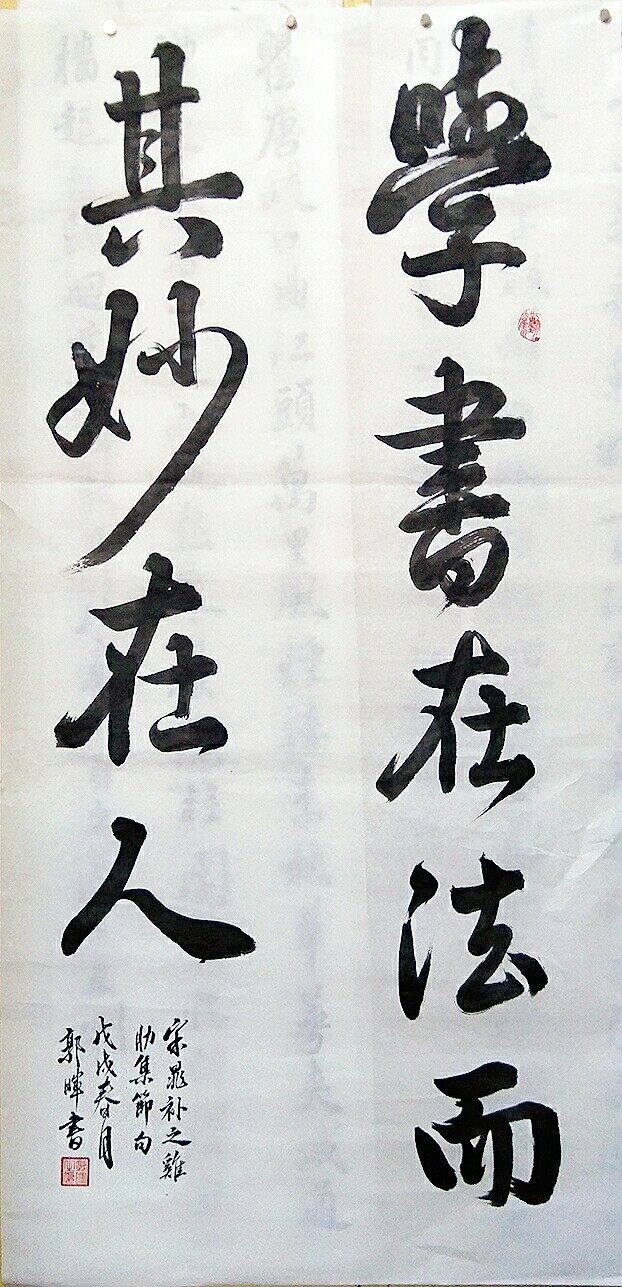 學書在法而
其妙在人
宋晁补之雞
肋集節句
戊戌春月
郭暉書